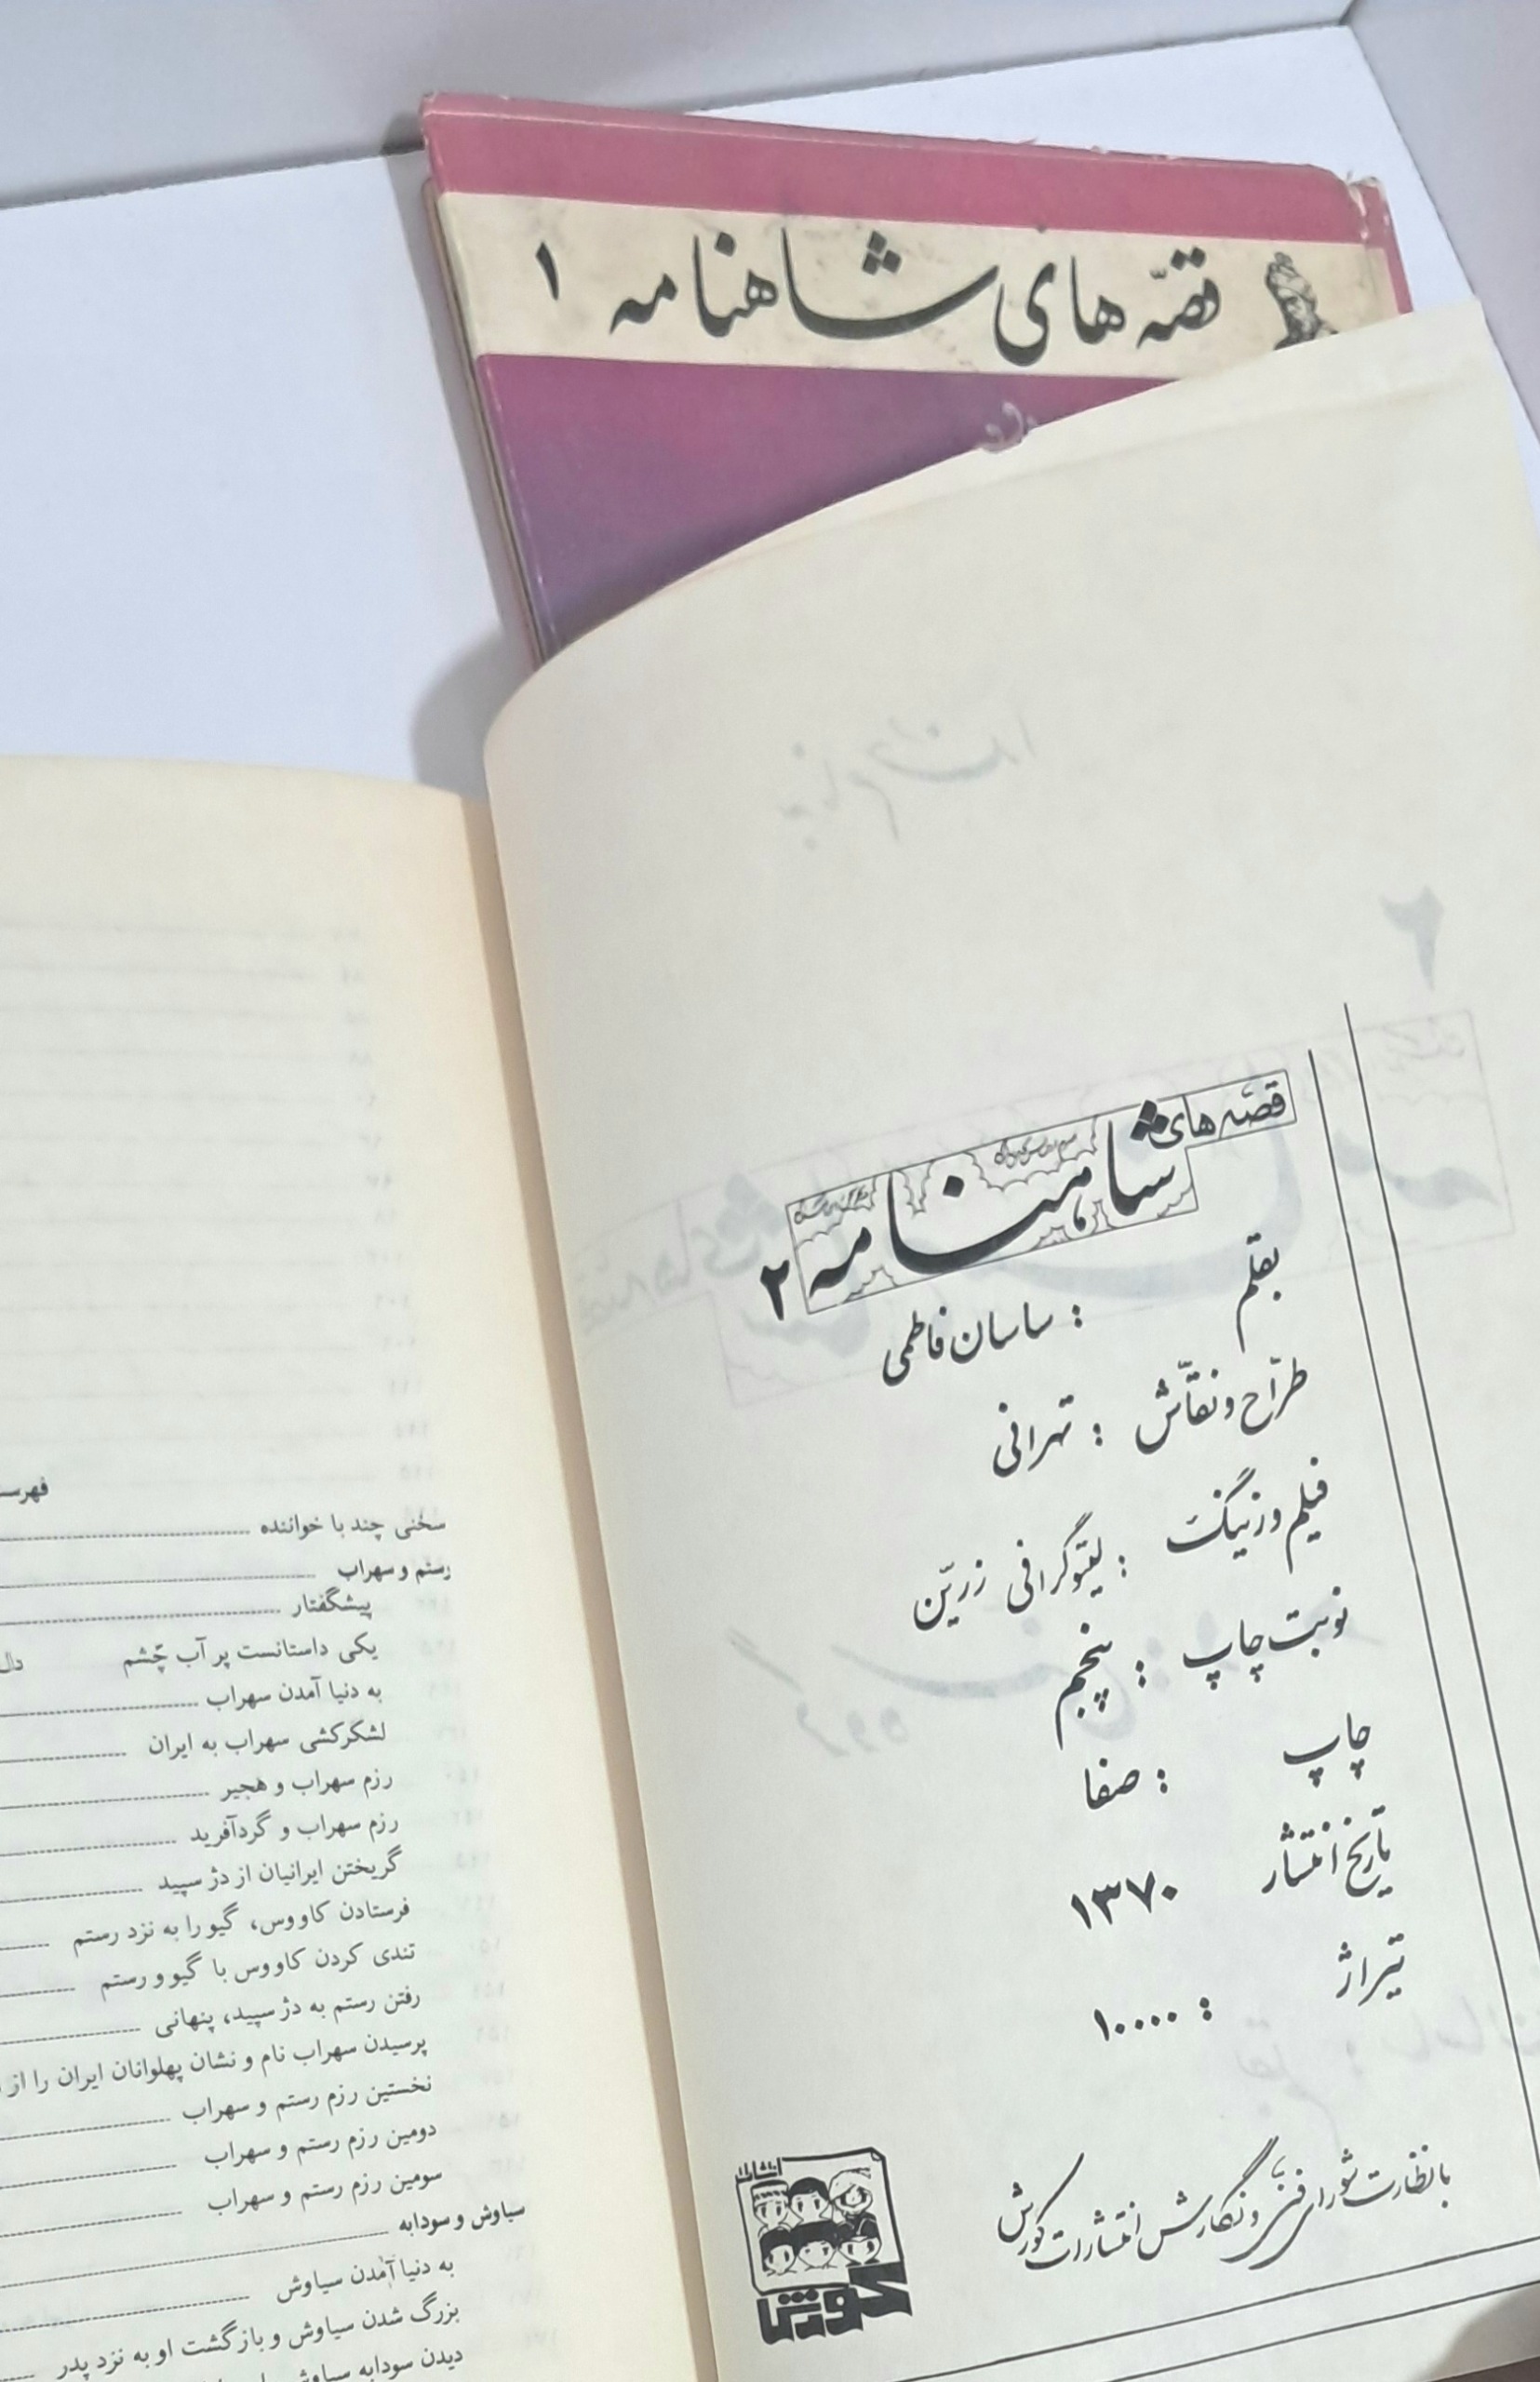 قصّه های شاهنامه ۱
قصّه های
شاهنامه ۲
بقلم : ساسان فاطمی
طرّاح و نقّاش : تهرانی
فیلم و زینگ : لیتوگرافی زرّین
نوبت چاپ : پنجم
چاپ : صفا
تاریخ انتشار ۱۳۷۰
تیراژ : ۱۰۰۰۰
با نظارت شورای فنی و نگارش انتشارات کورش
انتشارات
کورش
سخنی چند با خواننده
رستم و سهراب
پیشگفتار
یکی داستانست پر آب چشم
به دنیا آمدن سهراب
لشگرکشی سهراب به ایران
رزم سهراب و هجیر
رزم سهراب و گردآفرید
گریختن ایرانیان از دژ سپید
فرستادن کاووس، گیو را به نزد رستم
تندی کردن کاووس با گیو و رستم
رفتن رستم به دژ سپید، پنهانی
پرسیدن سهراب نام و نشان پهلوانان ایران را از
نخستین رزم رستم و سهراب
دومین رزم رستم و سهراب
سومین رزم رستم و سهراب
سیاوش و سودابه
به دنیا آمدن سیاوش
بزرگ شدن سیاوش و بازگشت او به نزد پدر
دیدن سودابه سیاوش